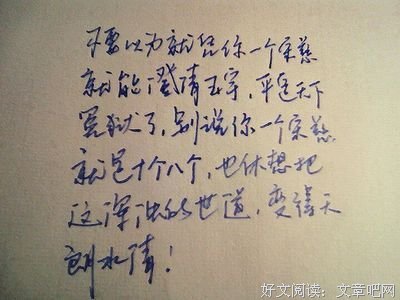 不要以为就凭你一个宋慈
就能澄清玉宇，平定天下
冤狱了，别说你一个宋慈
就是十个八个，也休想把
这浑浊的世道，变得天
朗水清！
好文阅读：文章吧网